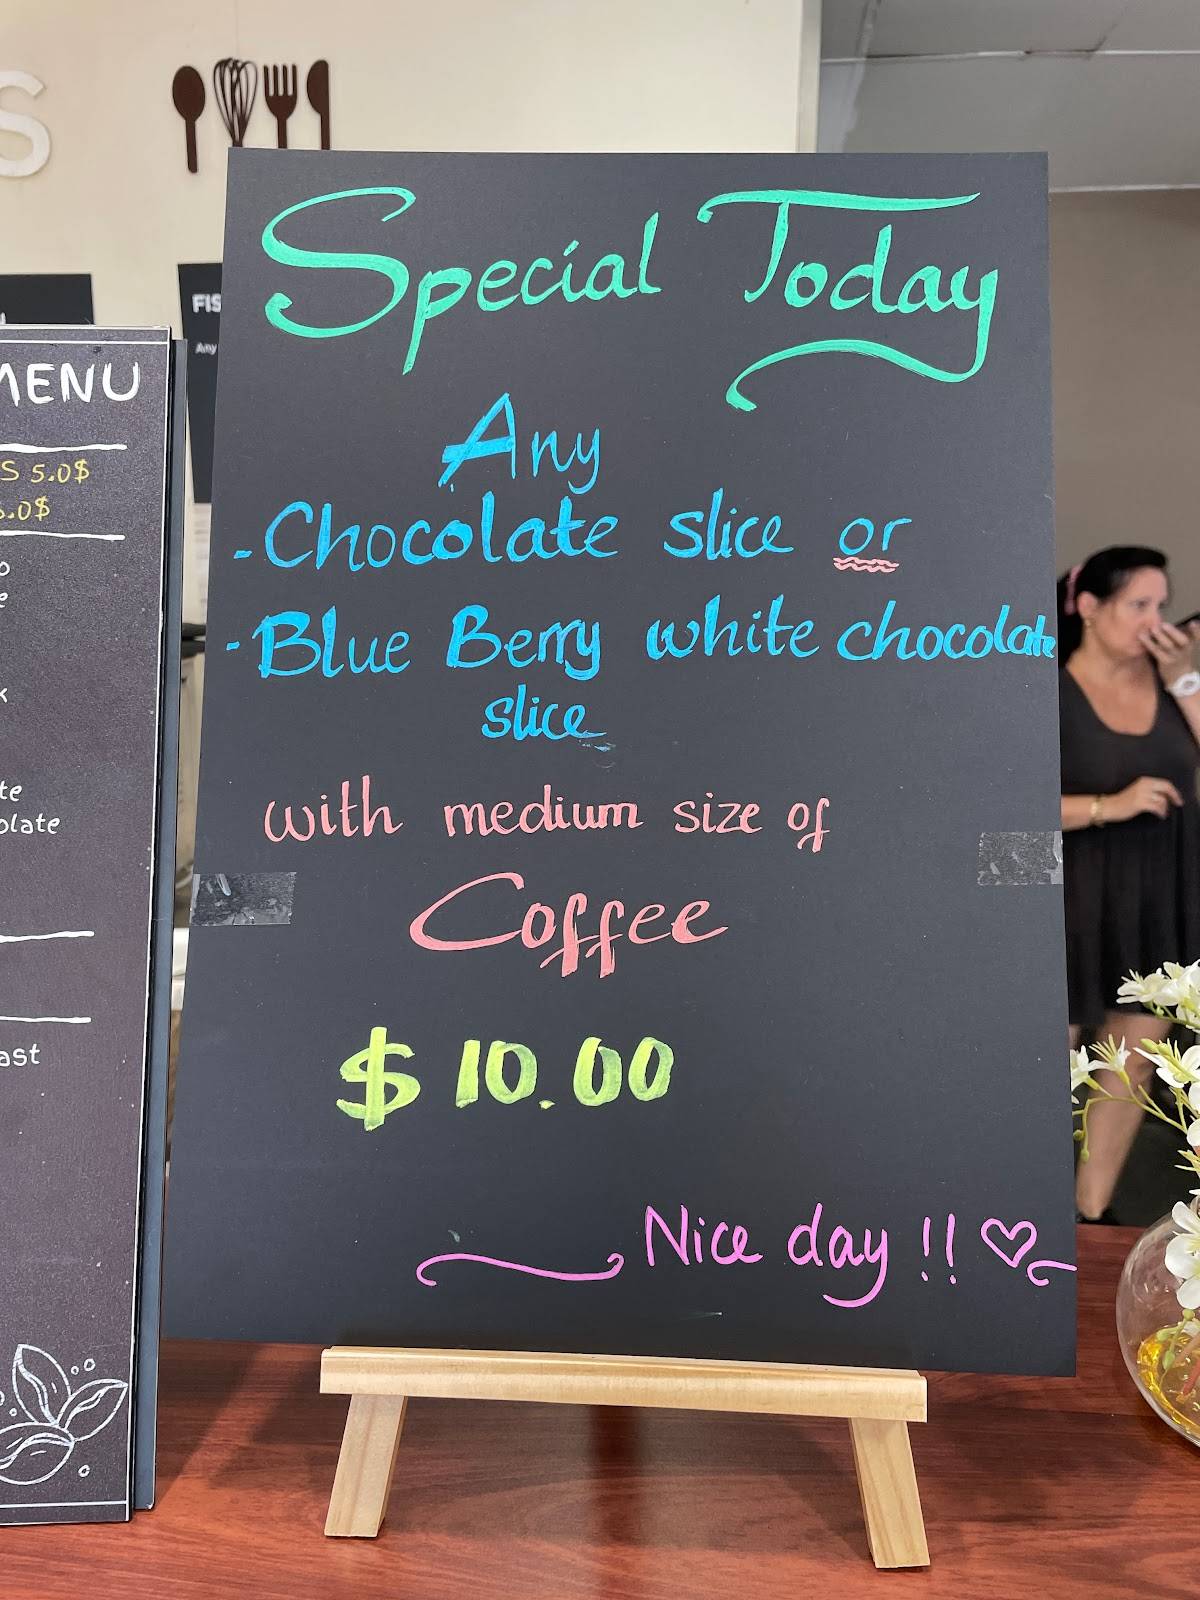 S
MENU
S 5.0$
.0$
k
te
olate
ast
FIS
Any
Special Today
Any
- Chocolate slice or
- Blue Berry white chocolate
slice
with medium size of
Coffee
$ 10.00
Nice day !!